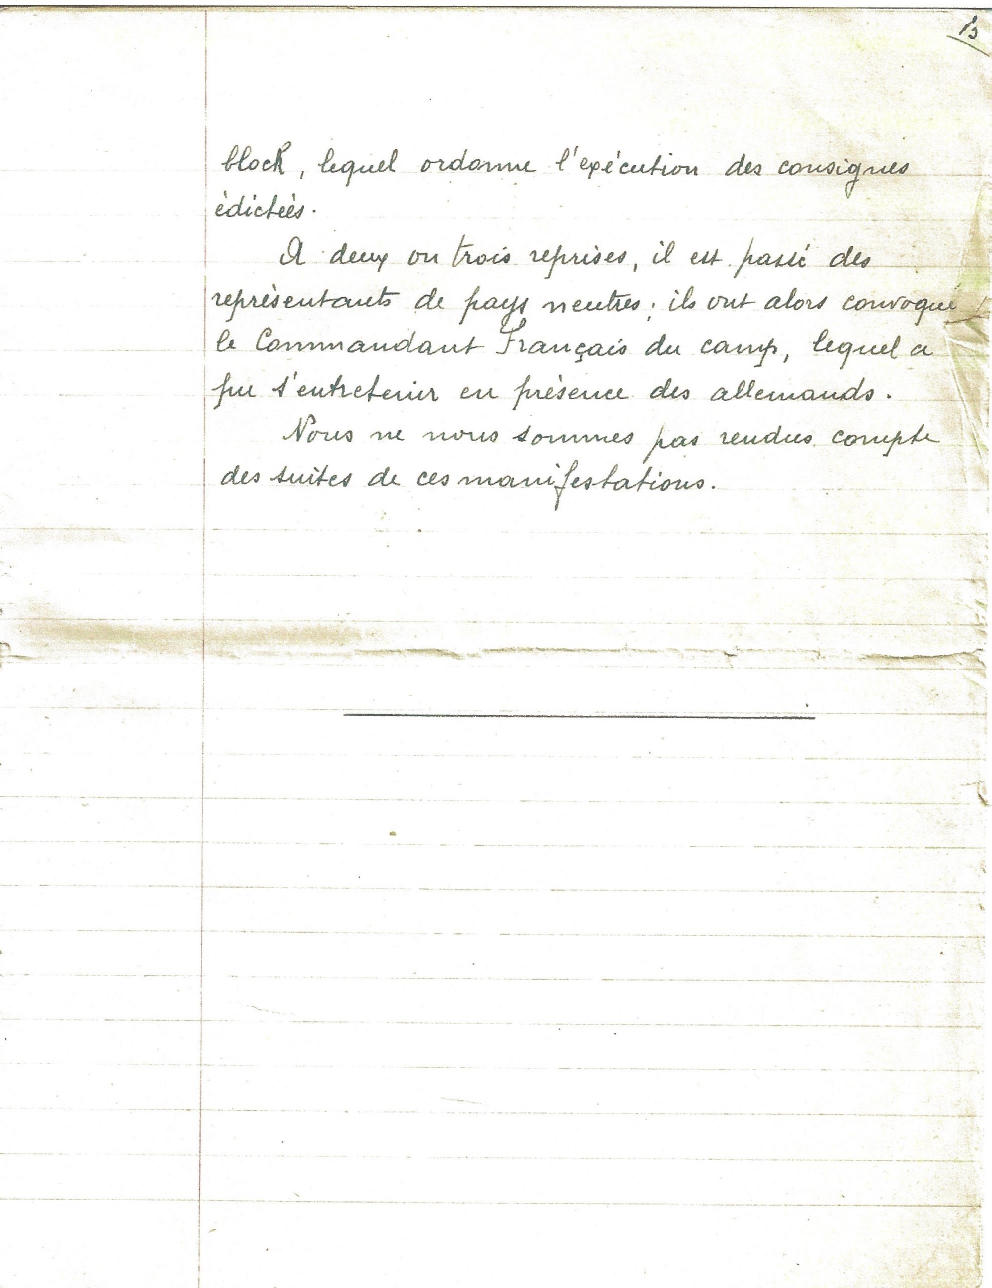 13
block, lequel ordonne l'exécution des consignes
édictées.
A deux ou trois reprises, il est passé des
représentants de pays neutres ; ils ont alors convoqué
le Commandant Français du camp, lequel a
pu s'entretenir en présence des allemands.
Nous ne nous sommes pas rendus compte
des suites de ces manifestations.